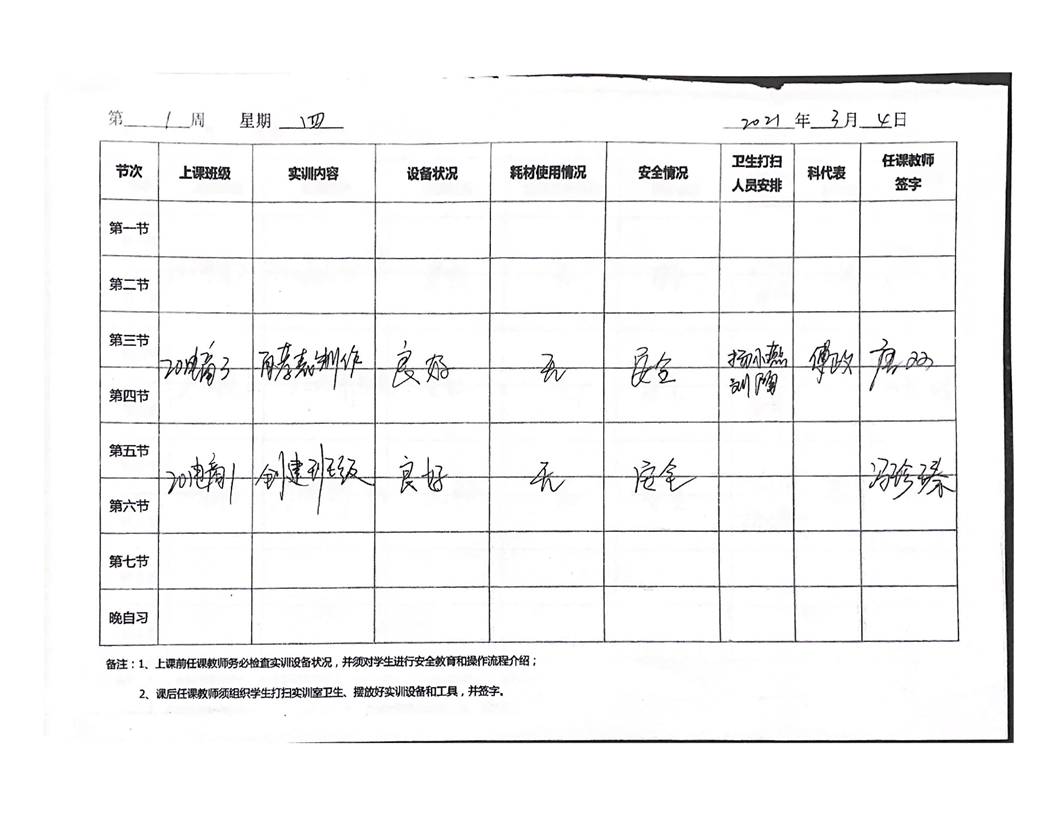 第 1 周 星期 四 2021 年 3 月 4 日
节次 上课班级 实训内容 设备状况 耗材使用情况 安全情况 卫生打扫人员安排 科代表 任课教师签字
第一节
第二节
第三节
20电商3 制作 良好 无 安全 杨小燕 傅政 唐双
刘陶
第四节
第五节
20电商1 创建班级 良好 无 安全 冯珍
第六节
第七节
晚自习
备注：1、上课前任课教师务必检查实训设备状况，并须对学生进行安全教育和操作流程介绍；
2、课后任课教师须组织学生打扫实训室卫生、摆放好实训设备和工具，并签字。